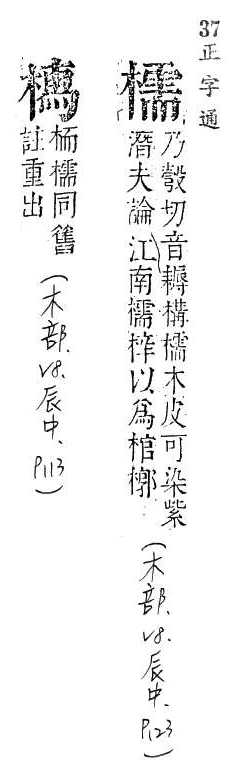 37正字通
檽
乃豰切音耨構檽木皮可染紫
潛夫論江南檽梓以為棺槨
(木部.V8.辰中.P123)
栭檽同舊
註重出
(木部.V8.辰中.P113)